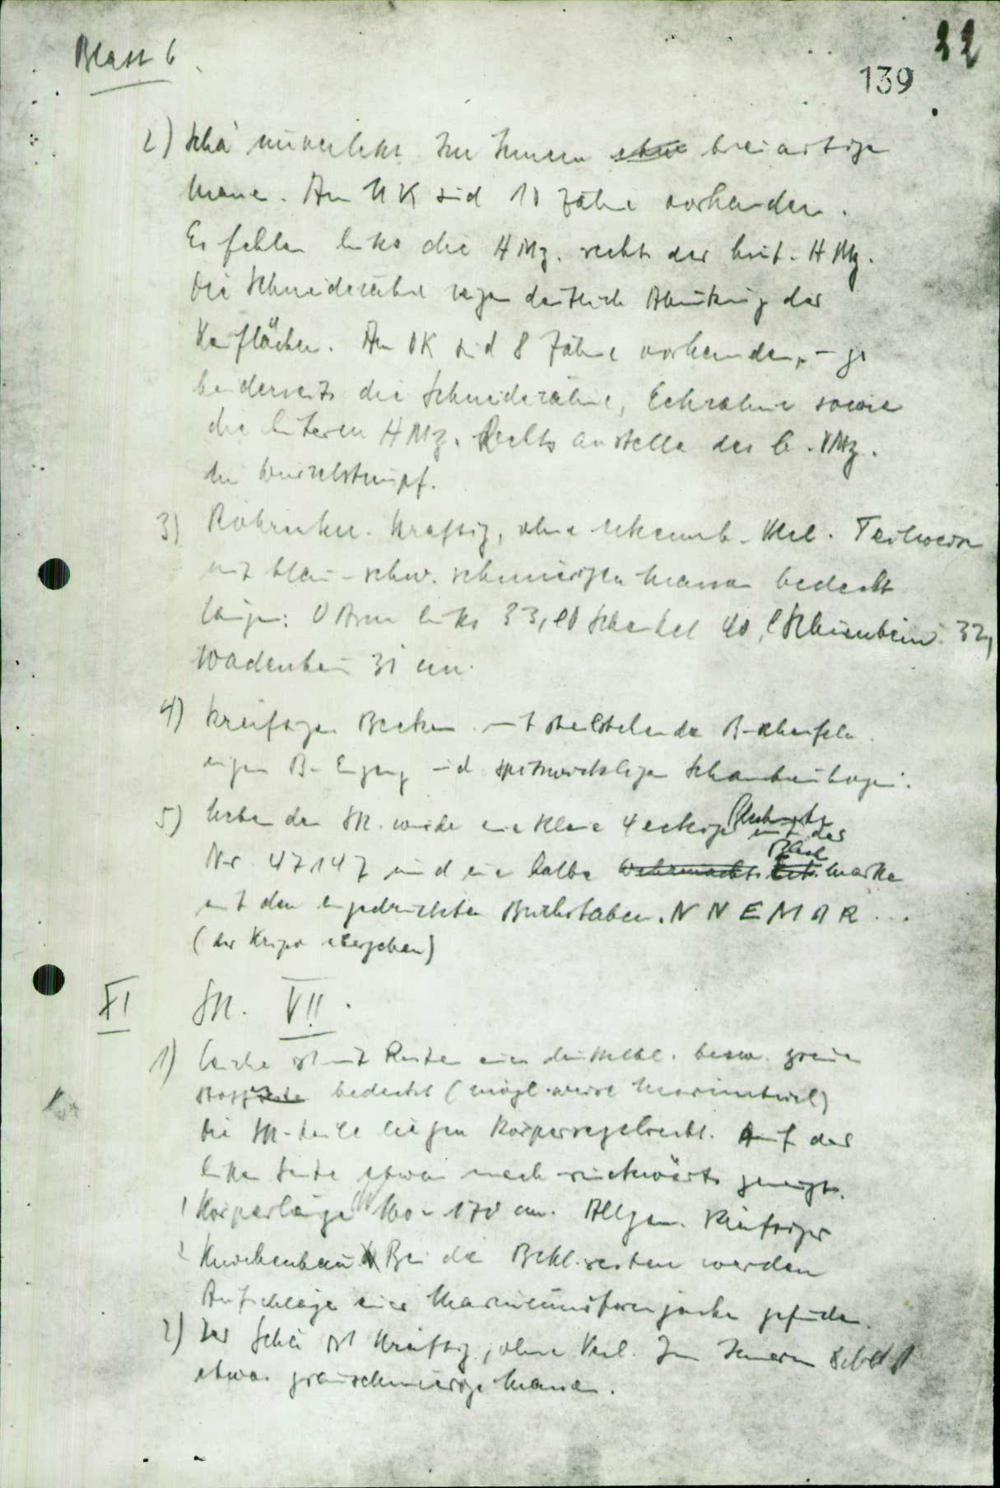 Blatt 6
22
139
2) Schä unverletzt. Im Innern ohne breiartige
Masse. Am UK sind 10 Zähne vorhanden.
Es fehlen links die HMz. rechts der hint. HMz.
Die Schneidezähne zeigen deutlich Abnützung der
Kauflächen. Am OK sind 8 Zähne vorhanden,
beiderseits die Schneidezähne, Eckzähne sowie
die hinteren HMz. Rechts anstelle des VMz.
ein Wurzelstumpf.
3) Röhrenkn. kräftig, ohne erkennb. Verl. Teilweise
mit blau-schw. schmierigen Massen bedeckt
Länge: O Arm links 33, O Schenkel 40, Schienbein 32,
Wadenbein 31 cm.
4) kräftiges Becken mit steilstehenden B-schaufeln
engen B-Eingang und spitzwinkligen Schambeinbogen.
5) Neben dem Sk. wurde eine kleine 4 eckige mit der
Nr. 47147 und eine halbe Wehrmachts Blech marke
mit den eingedruckten Buchstaben. N N E M A R ...
(der Kripo übergeben)
XI Sk. VII.
1) Leiche ist mit Resten eines dunkelbl. bezw. grauen
Stoffes bedeckt (möglicherweise Marinetuch)
Die Sk-teile liegen körpergerecht. Auf der
linken Seite etwas nach rückwärts geneigt.
1 Körperlänge 160-170 cm. Allgem. kräftiger
2 Knochenbau. Bei den Bekl.resten werden
Aufschläge einer Marineuniformjacke gefunden.
2) Der Schä ist kräftig, ohne Verl. Im Innern
etwas grauschmierige Massen.